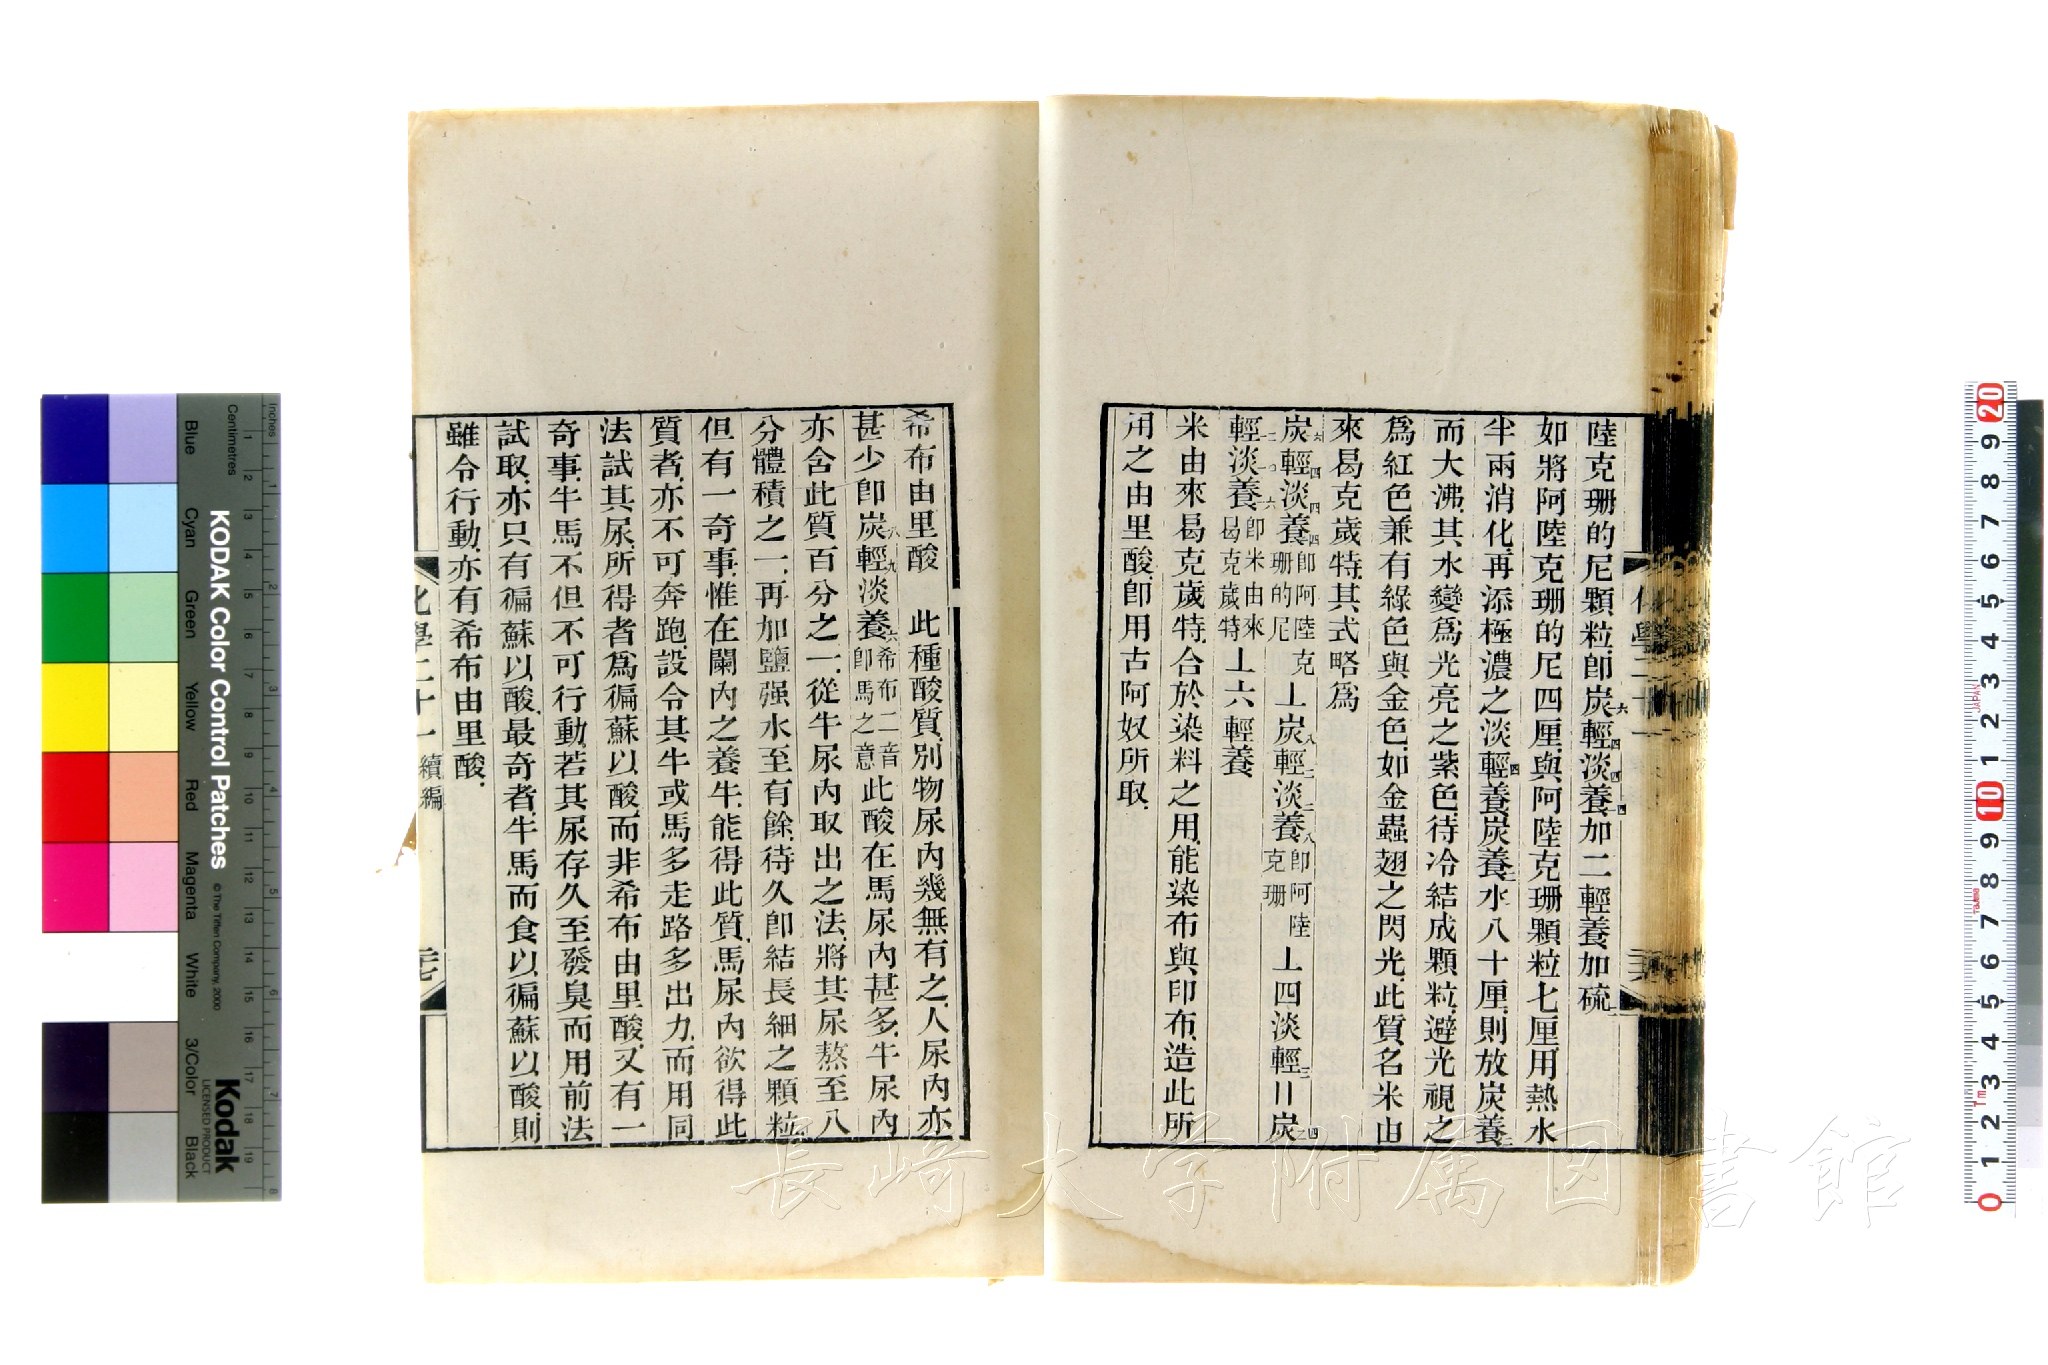 陸克珊的尼顆粒卽炭六輕四淡四養四加二輕養加硫
如將阿陸克珊的尼四厘與阿陸克珊顆粒七厘用熱水
半兩消化再添極濃之淡輕四養炭養二水八十厘則放炭養二
而大沸其水變爲光亮之紫色待冷結成顆粒避光視之
爲紅色兼有綠色與金色如金蟲翅之閃光此質名米由
來曷克歲特其式略爲
炭六輕四淡四養四卽阿陸克珊的尼上炭八輕二淡二養八卽阿陸克珊上四淡輕三〢炭二四
輕一〇淡六養卽米由來曷克歲特上六輕養
米由來曷克歲特合於染料之用能染布與印布造此所
用之由里酸卽用古阿奴所取
化學二十
希布由里酸 此種酸質別物尿內幾無有之人尿內亦
甚少卽炭一八輕九淡養六希布二音卽馬之意此酸在馬尿內甚多牛尿內
亦含此質百分之一從牛尿內取出之法將其尿熬至八
分體積之一再加鹽强水至有餘待久卽結長細之顆粒
但有一奇事惟在闌內之養牛能得此質馬尿內欲得此
質者亦不可奔跑設令其牛或馬多走路多出力而用同
法試其尿所得者爲徧蘇以酸而非希布由里酸又有一
奇事牛馬不但不可行動若其尿存久至發臭而用前法
試取亦只有徧蘇以酸最奇者牛馬而食以徧蘇以酸則
雖令行動亦有希布由里酸
化學二十一 續編
長崎大学附属図書館
KODAK Color Control Patches
© The Tiffen Company, 2000
Kodak
LICENSED PRODUCT
Inches
Centimetres
Blue
Cyan
Green
Yellow
Red
Magenta
White
3/Color
Black
JAPAN
Tajima